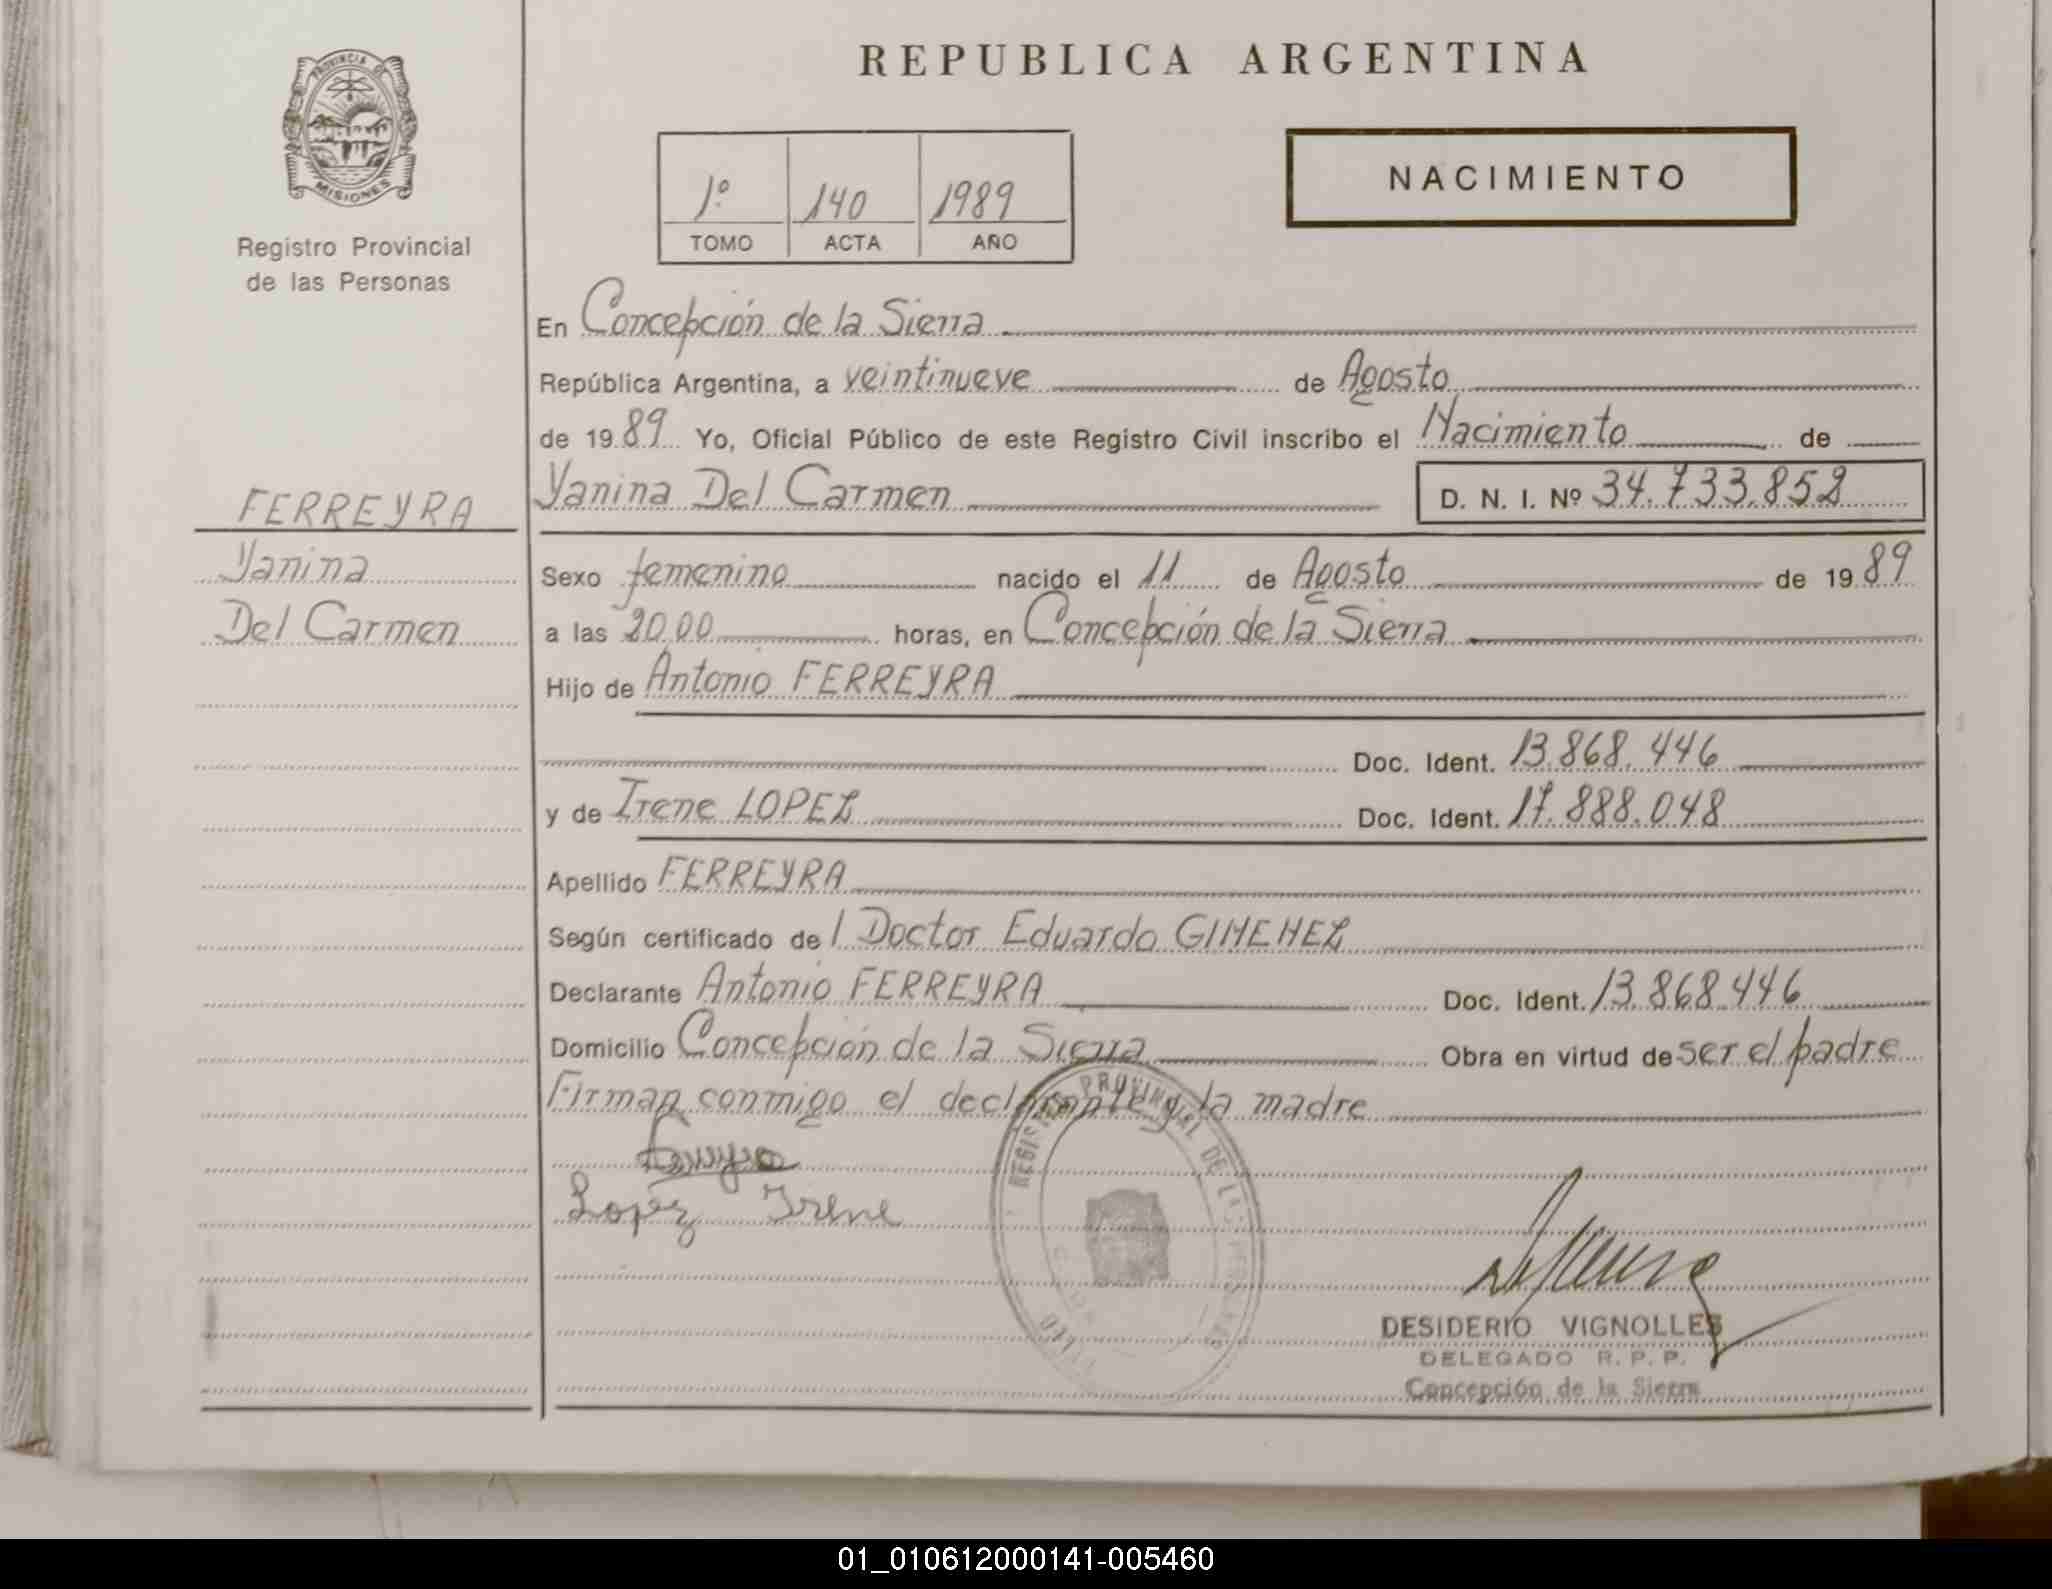 REPUBLICA ARGENTINA
PROVINCIA DE
MISIONES
Registro Provincial
de las Personas
1º 140 1989
TOMO ACTA AÑO
NACIMIENTO
En Concepción de la Sierra
República Argentina, a veintinueve de Agosto
de 1989 Yo, Oficial Público de este Registro Civil inscribo el Nacimiento de
Yanina Del Carmen D. N. I. Nº 34.733.852
FERREYRA
Yanina
Del Carmen
Sexo femenino nacido el 11 de Agosto de 1989
a las 20,00 horas, en Concepción de la Sierra
Hijo de Antonio FERREYRA
Doc. Ident. 13.868.446
y de Irene LOPEZ Doc. Ident. 17.888.048
Apellido FERREYRA
Según certificado del Doctor Eduardo GIMENEZ
Declarante Antonio FERREYRA Doc. Ident. 13.868.446
Domicilio Concepción de la Sierra Obra en virtud de ser el padre
Firman conmigo el declarante y la madre
Lopez Irene
REGISTRO PROVINCIAL DE LAS PERSONAS
DESIDERIO VIGNOLLES
DELEGADO R. P. P.
Concepción de la Sierra
01_010612000141-005460